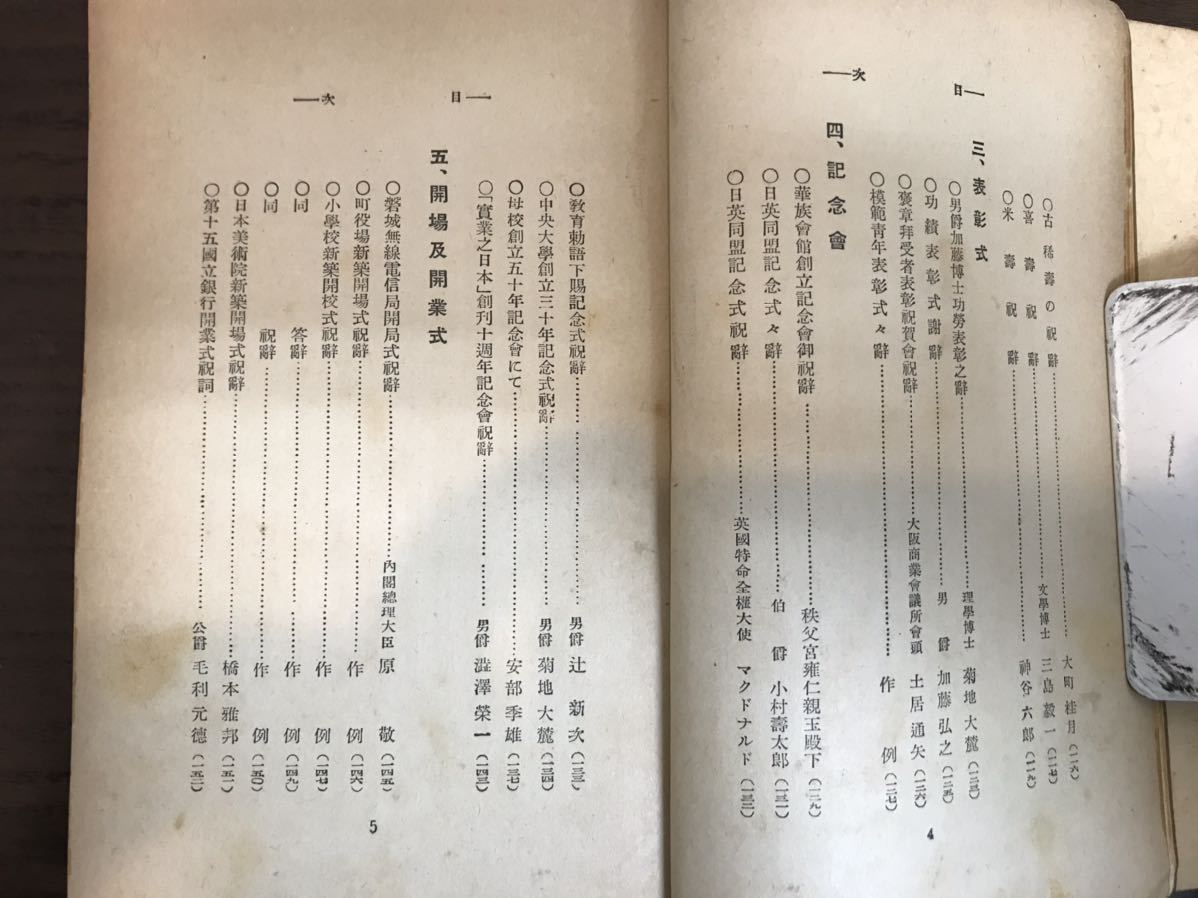 目
次
〇古稀壽の祝辭 大町桂月(一一六)
〇喜壽祝辭 文學博士 三島毅一(一一七)
〇米壽祝辭 神谷六郎(一一九)
三、表彰式
〇男爵加藤博士功勞表彰之辭 理學博士 菊地大麓(一二三)
〇功績表彰式謝辭 男爵 加藤弘之(一二五)
〇褒章拜受者表彰祝賀會祝辭 大阪商業會議所會頭 土居通矢(一二六)
〇模範青年表彰式々辭 作例(一二七)
四、記念會
〇華族會館創立記念會御祝辭 秩父宮雍仁親王殿下(一二九)
〇日英同盟記念式々辭 伯爵 小村壽太郎(一三一)
〇日英同盟記念式祝辭 英國特命全權大使 マクドナルド(一三二)
4
目
次
〇教育勅語下賜記念式祝辭 男爵 辻新次(一三三)
〇中央大學創立三十年記念式祝辭 男爵 菊地大麓(一三四)
〇母校創立五十年記念會にて 安部季雄(一三七)
〇「實業之日本」創刊十週年記念會祝辭 男爵 澁澤榮一(一四三)
五、開場及開業式
〇磐城無線電信局開局式祝辭 內閣總理大臣 原敬(一四五)
〇町役場新築開場式祝辭 作例(一四六)
〇小學校新築開校式祝辭 作例(一四七)
〇同 答辭 作例(一四九)
〇同 祝辭 作例(一五〇)
〇日本美術院新築開場式祝辭 橋本雅邦(一五一)
〇第十五國立銀行開業式祝詞 公爵 毛利元德(一五二)
5